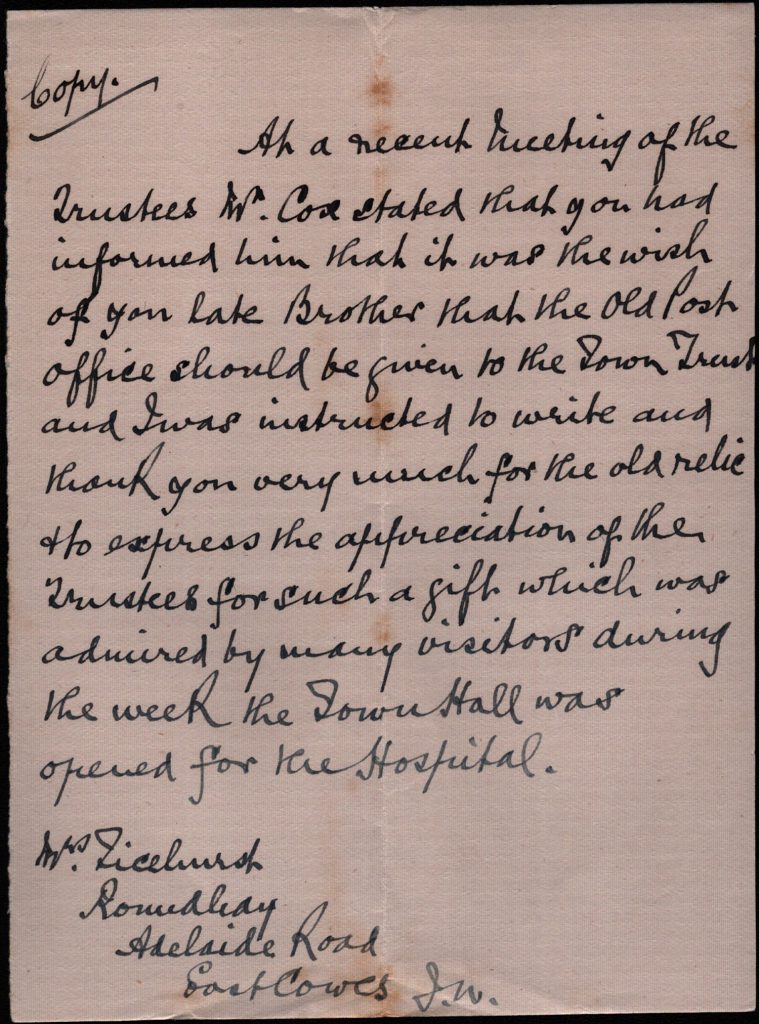 Copy.
At a recent Meeting of the
Trustees Mr. Cox stated that you had
informed him that it was the wish
of you late Brother that the Old Post
office should be given to the Town Trust
and I was instructed to write and
thank you very much for the old relic
& to express the appreciation of the
Trustees for such a gift which was
admired by many visitors during
the week the Town Hall was
opened for the Hospital.
Mrs. Ticehurst
Roundhay
Adelaide Road
East Cowes I.W.